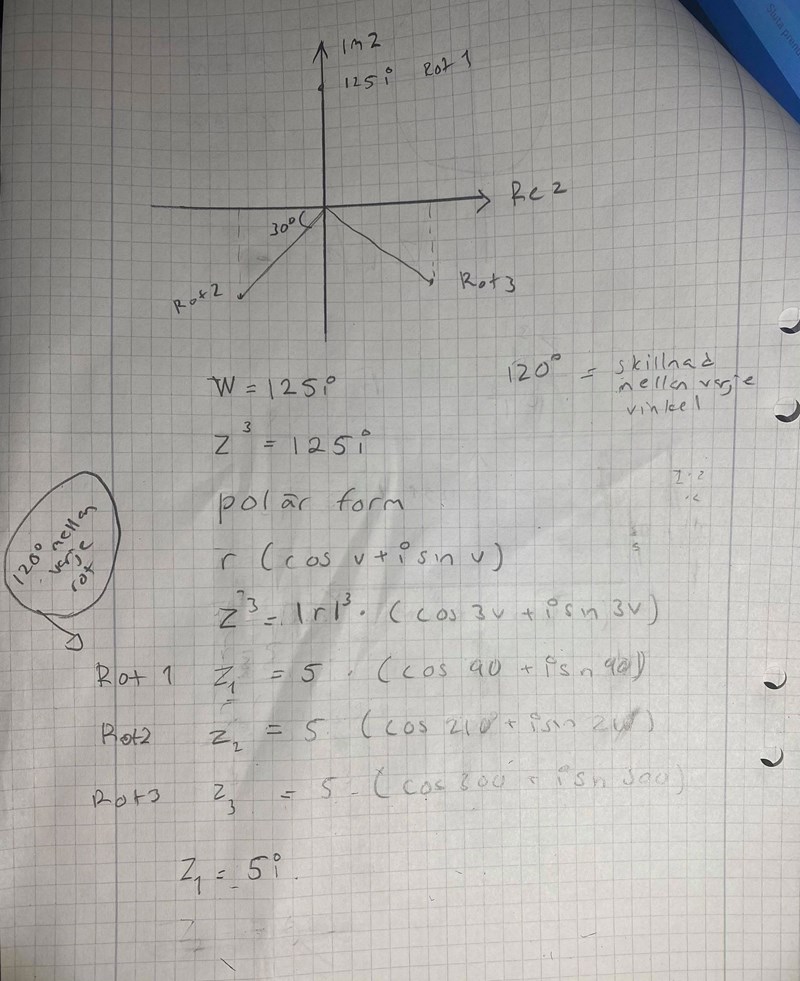 Im z
125i Rot 1
Re z
30°
Rot 2
Rot 3
W = 125i
120° = skillnad
mellan varje
vinkel
z³ = 125i
polär form
r (cos v + i sin v)
120°
mellan
varje
rot
z³ = |r|³ · (cos 3v + i sin 3v)
Rot 1 z₁ = 5 · (cos 90 + i sin 90)
Rot2 z₂ = 5 (cos 210 + i sin 210)
Rot 3 z₃ = 5 · (cos 300 + i sin 300)
z₁ = 5i